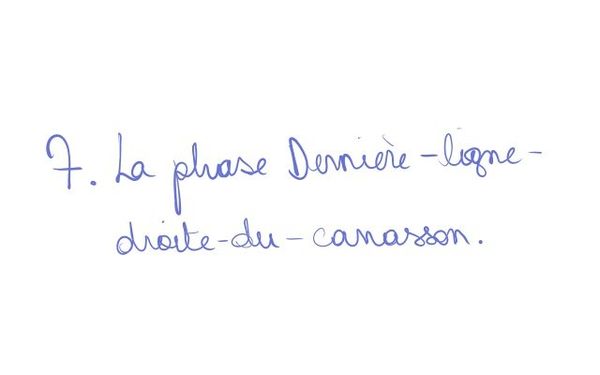 7. La phase Dernière-ligne-
droite-du-canasson.